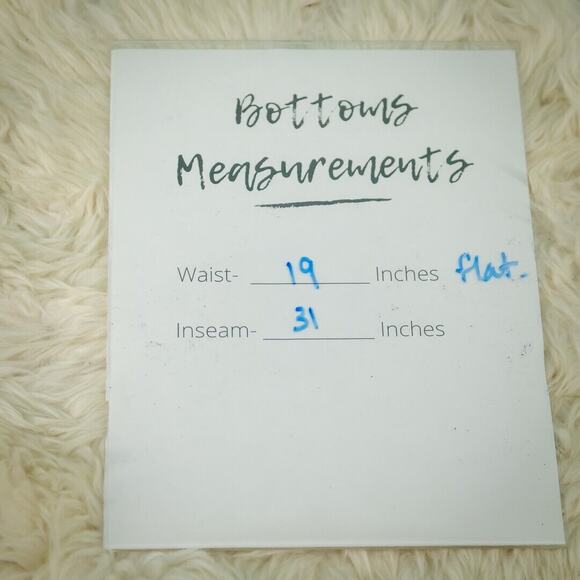 Bottoms
Measurements
Waist- 19 Inches flat.
Inseam- 31 Inches